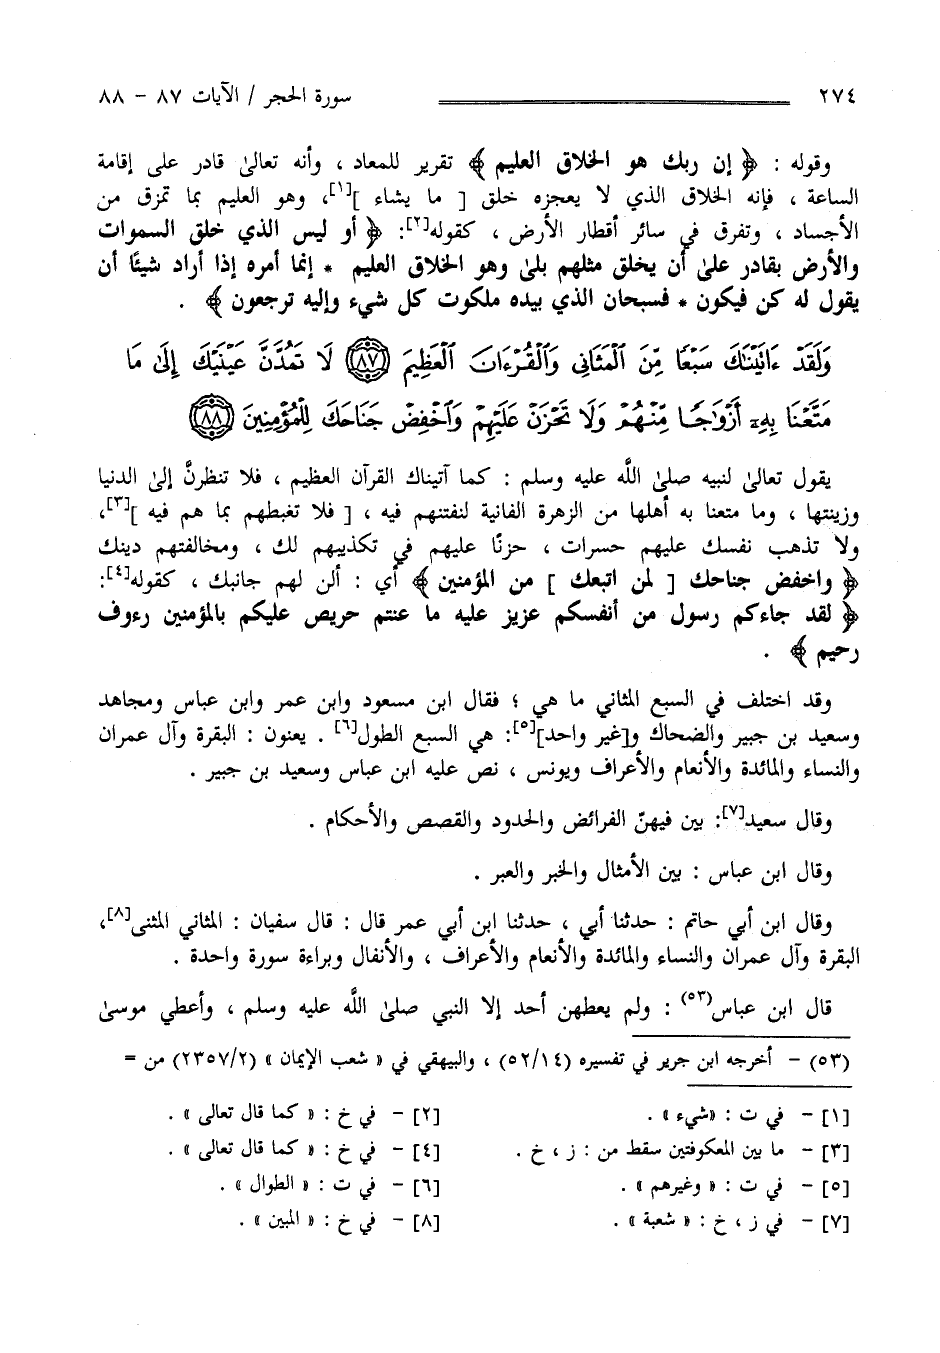 ٢٧٤ سورة الحجر / الآيات ٨٧ - ٨٨
وقوله : ﴿ إن ربك هو الخلاق العليم ﴾ تقرير للمعاد ، وأنه تعالىٰ قادر على إقامة
الساعة ، فإنه الخلاق الذي لا يعجزه خلق [ ما يشاء ][١]، وهو العليم بما تمزق من
الأجساد ، وتفرق في سائر أقطار الأرض ، كقوله[٢]: ﴿ أو ليس الذي خلق السموات
والأرض بقادر علىٰ أن يخلق مثلهم بلىٰ وهو الخلاق العليم * إنما أمره إذا أراد شيئًا أن
يقول له كن فيكون * فسبحان الذي بيده ملكوت كل شيء وإليه ترجعون ﴾ .
وَلَقَدْ ءَاتَيْنَٰكَ سَبْعًا مِّنَ ٱلْمَثَانِى وَٱلْقُرْءَانَ ٱلْعَظِيمَ ﴿٨٧﴾ لَا تَمُدَّنَّ عَيْنَيْكَ إِلَىٰ مَا
مَتَّعْنَا بِهِۦٓ أَزْوَٰجًا مِّنْهُمْ وَلَا تَحْزَنْ عَلَيْهِمْ وَٱخْفِضْ جَنَاحَكَ لِلْمُؤْمِنِينَ ﴿٨٨﴾
يقول تعالىٰ لنبيه صلىٰ اللَّه عليه وسلم : كما آتيناك القرآن العظيم ، فلا تنظرنَّ إلىٰ الدنيا
وزينتها ، وما متعنا به أهلها من الزهرة الفانية لنفتنهم فيه ، [ فلا تغبطهم بما هم فيه ][٣]،
ولا تذهب نفسك عليهم حسرات ، حزنًا عليهم في تكذيبهم لك ، ومخالفتهم دينك
﴿ واخفض جناحك [ لمن اتبعك ] من المؤمنين ﴾ أي : ألن لهم جانبك ، كقوله[٤]:
﴿ لقد جاءكم رسول من أنفسكم عزيز عليه ما عنتم حريص عليكم بالمؤمنين رءوف
رحيم ﴾ .
وقد اختلف في السبع المثاني ما هي ؛ فقال ابن مسعود وابن عمر وابن عباس ومجاهد
وسعيد بن جبير والضحاك و[غير واحد][٥]: هي السبع الطول[٦] . يعنون : البقرة وآل عمران
والنساء والمائدة والأنعام والأعراف ويونس ، نص عليه ابن عباس وسعيد بن جبير .
وقال سعيد[٧]: بين فيهنّ الفرائض والحدود والقصص والأحكام .
وقال ابن عباس : بين الأمثال والخبر والعبر .
وقال ابن أبي حاتم : حدثنا أبي ، حدثنا ابن أبي عمر قال : قال سفيان : المثاني المثنى[٨]،
البقرة وآل عمران والنساء والمائدة والأنعام والأعراف ، والأنفال وبراءة سورة واحدة .
قال ابن عباس(٥٣) : ولم يعطهن أحد إلا النبي صلىٰ اللَّه عليه وسلم ، وأعطي موسىٰ
(٥٣) - أخرجه ابن جرير في تفسيره (٥٢/١٤) ، والبيهقي في « شعب الإيمان » (٢٣٥٧/٢) من =
[١] - في ت : «شيء» . [٢] - في خ : « كما قال تعالى » .
[٣] - ما بين المعكوفتين سقط من : ز ، خ . [٤] - في خ : « كما قال تعالى » .
[٥] - في ت : « وغيرهم » . [٦] - في ت : « الطوال » .
[٧] - في ز ، خ : « شعبة » . [٨] - في خ : « المبين » .